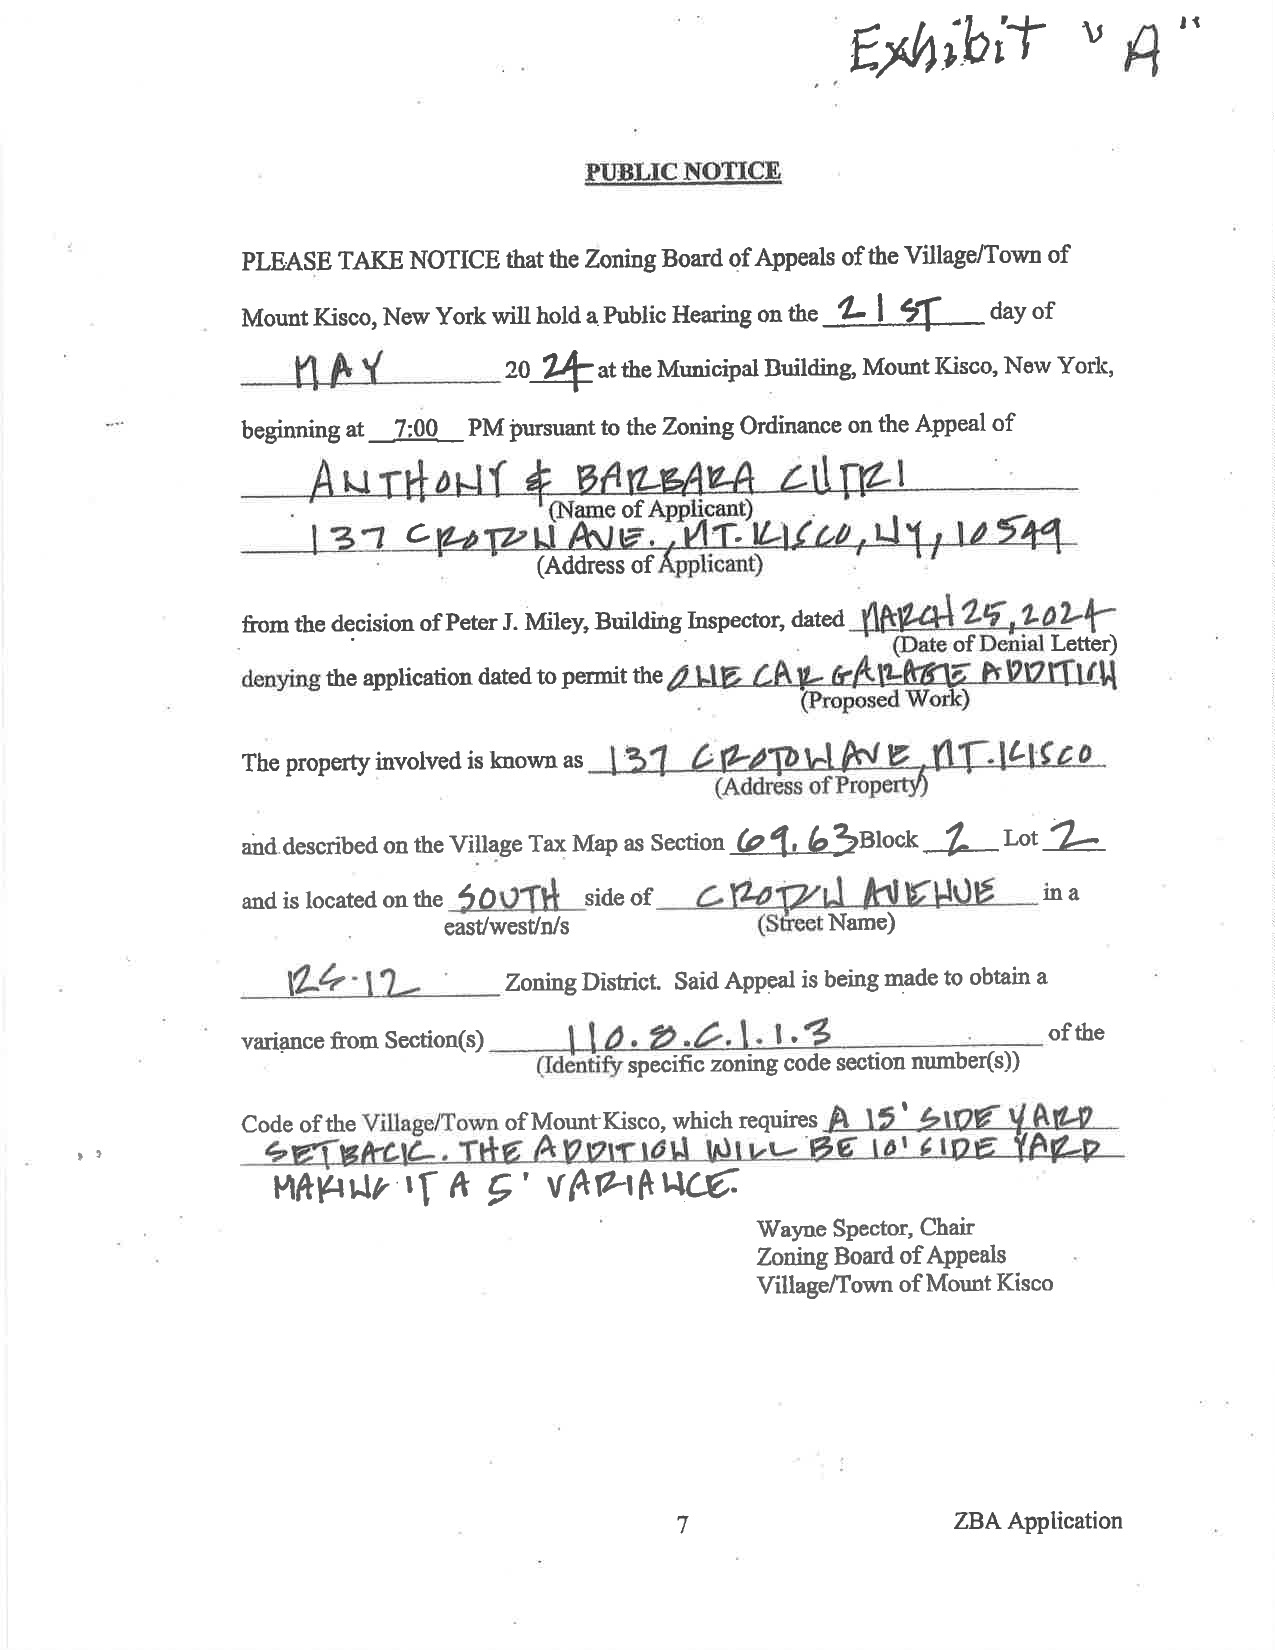 Exhibit "A"
PUBLIC NOTICE
PLEASE TAKE NOTICE that the Zoning Board of Appeals of the Village/Town of
Mount Kisco, New York will hold a Public Hearing on the 21ST day of
MAY 2024 at the Municipal Building, Mount Kisco, New York,
beginning at 7:00 PM pursuant to the Zoning Ordinance on the Appeal of
ANTHONY & BARBARA CUTRI
(Name of Applicant)
137 CROTON AVE., MT. KISCO, NY, 10549
(Address of Applicant)
from the decision of Peter J. Miley, Building Inspector, dated MARCH 25, 2024
(Date of Denial Letter)
denying the application dated to permit the ONE CAR GARAGE ADDITION
(Proposed Work)
The property involved is known as 137 CROTON AVE, MT. KISCO
(Address of Property)
and described on the Village Tax Map as Section 69.63 Block 2 Lot 2
and is located on the SOUTH side of CROTON AVENUE in a
east/west/n/s (Street Name)
RS-12 Zoning District. Said Appeal is being made to obtain a
variance from Section(s) 110.8.C.1.1.3 of the
(Identify specific zoning code section number(s))
Code of the Village/Town of Mount Kisco, which requires A 15' SIDE YARD
SETBACK. THE ADDITION WILL BE 10' SIDE YARD
MAKING IT A 5' VARIANCE.
Wayne Spector, Chair
Zoning Board of Appeals
Village/Town of Mount Kisco
7 ZBA Application